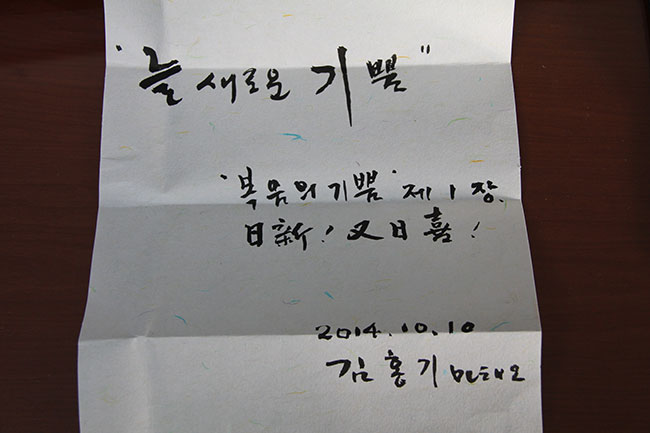 "늘 새로운 기쁨"
"복음의 기쁨" 제1장.
日新! 又日喜!
2014.10.10
김홍기 마태오